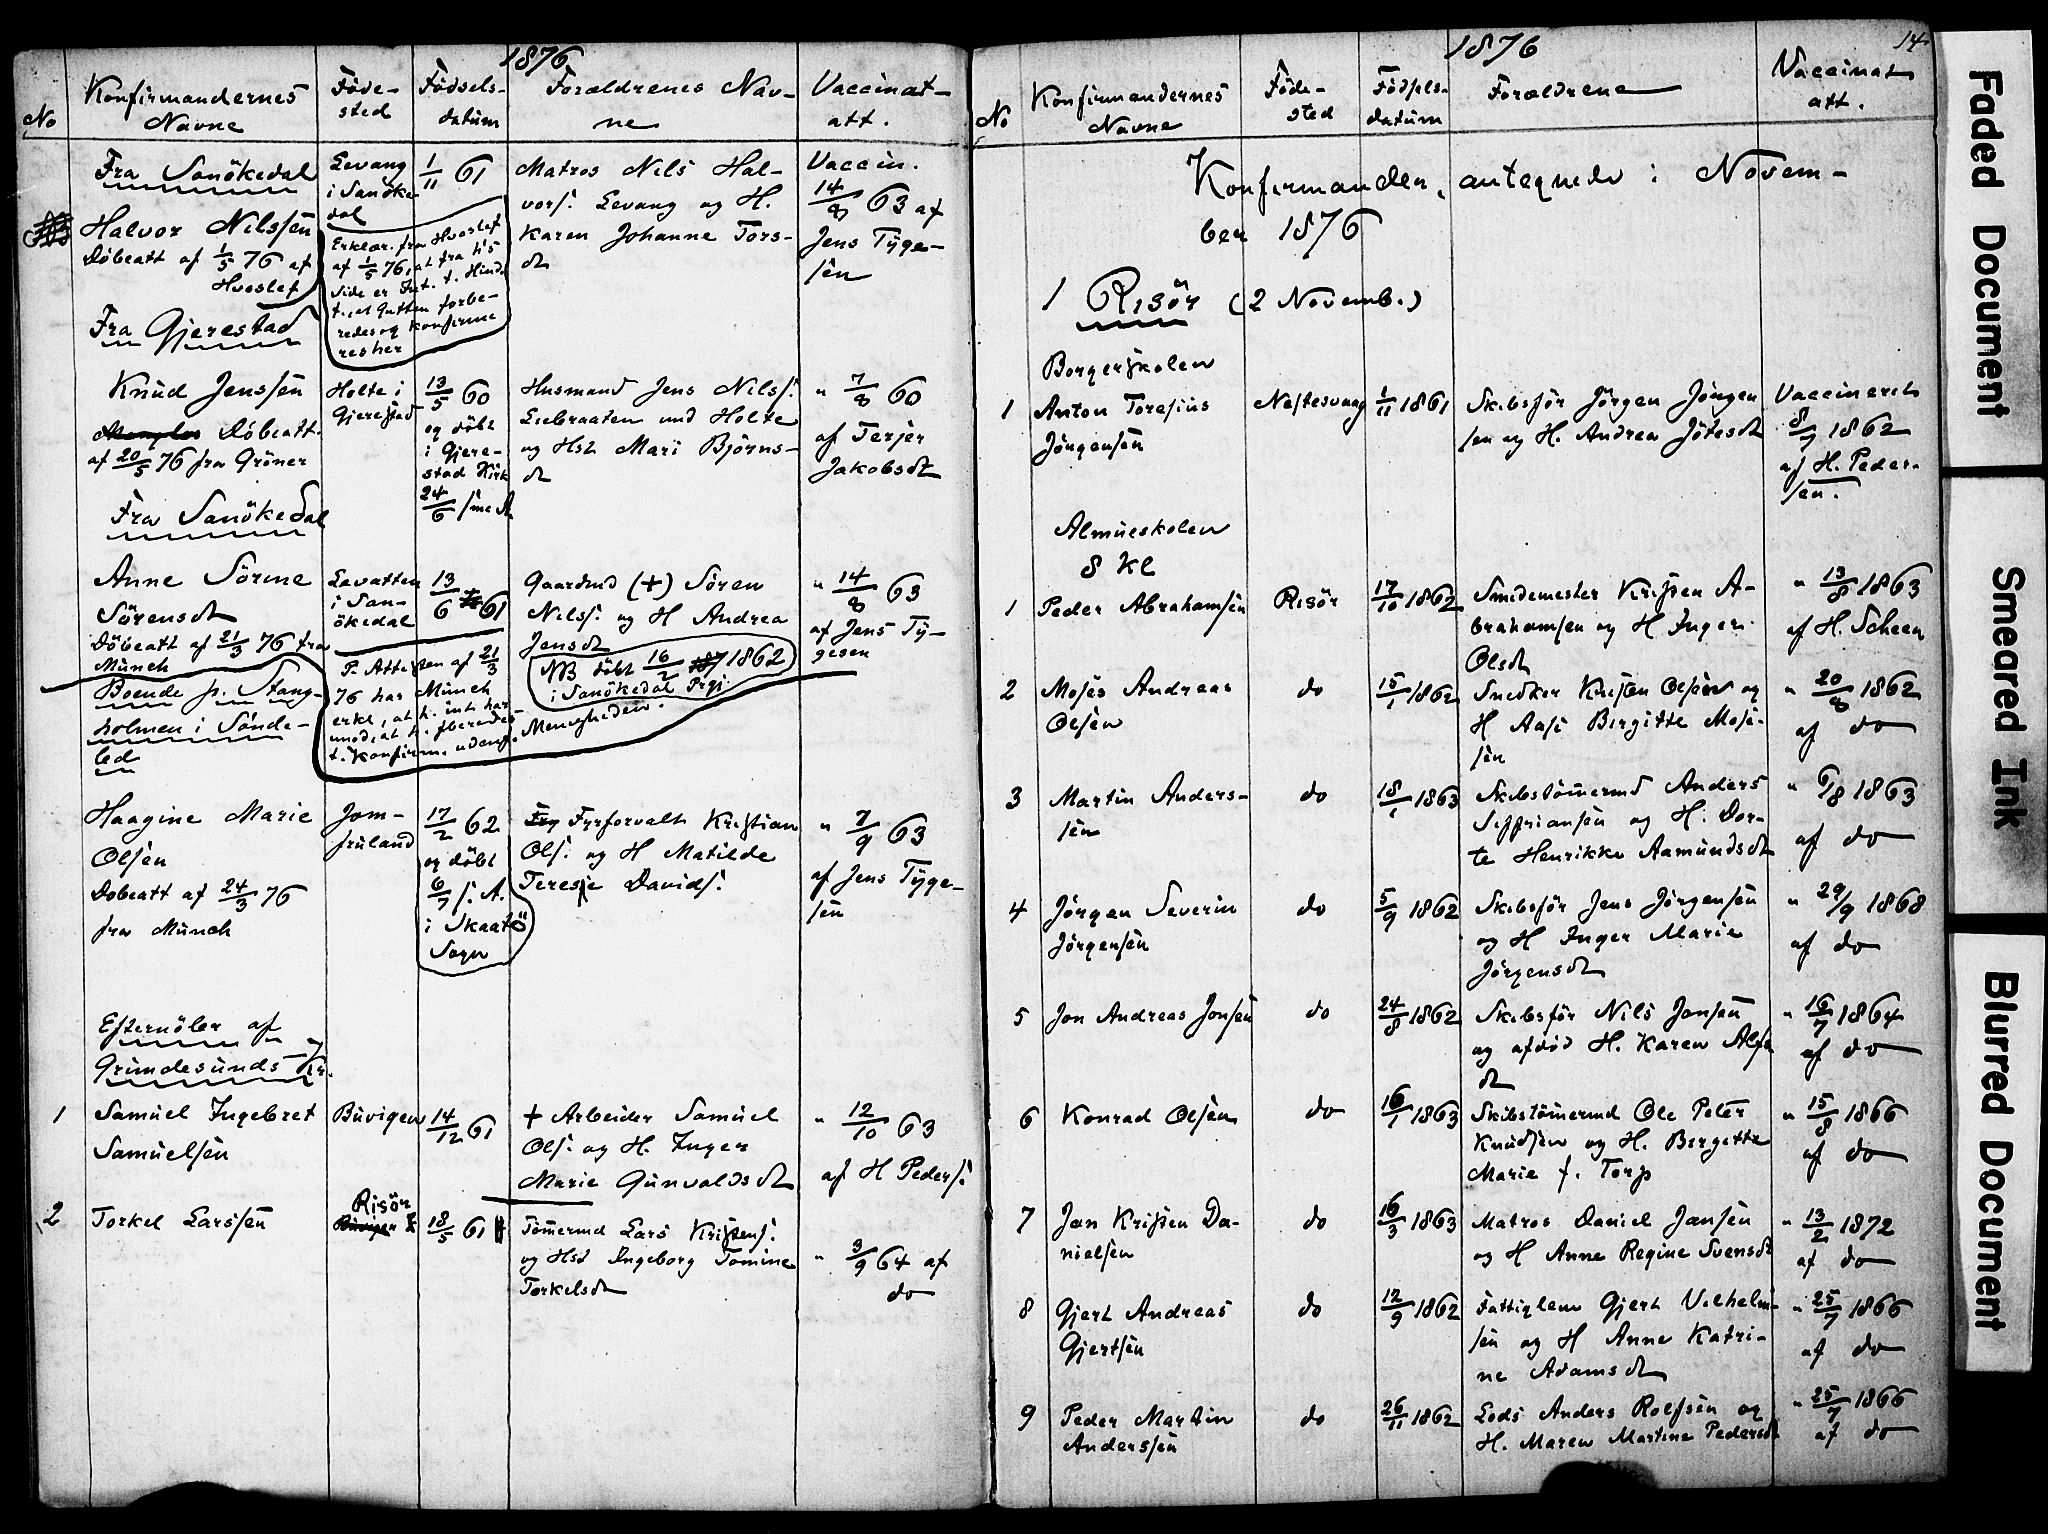 1876
No
Konfirmandernes
Navne
Føde-
sted
Fødsels-
datum
Forældrenes Nav-
ne
Vaccinat-
att.
Fra Sanökedal
Levang
i Sanöke-
dal
1/11 61
Matros Nils Hal-
vors. Levang og H.
Karen Johanne Tors-
dt
Vaccin.
14/8 63 af
Jens Tyge-
sen
Halvor Nilssen
Döbeatt af 1/5 76 af
Hvoslef
Erklær. fra Hvoslef
af 1/5 76, at fra h's
Side er Int. t. Hind.
f., at Gutten forbe-
redes og konfirme
res her
Fra Gjerestad
Knud Jenssen
Döbeatt.
af 20/5 76 fra Gröner
Holte i
Gjerestad
13/5 60
og döbt
i Gjere-
stad Kirk
24/6 sme A.
Husmand Jens Nilss.
Liebraaten und Holte
og Hst Mari Björns-
dt
" 7/8 60
af Terjer
Jakobsdt
Fra Sanökedal
Anne Sörine
Sörensdt
Döbeatt af 21/3 76 fra
Münch
Levatten
i San-
ökedal
13/6 61
Gaardmd (+) Sören
Nilss. og H Andrea
Jensdt
NB döbt 16/2 1862
i Sanökedal Prgj.
" 14/8 63
af Jens Ty-
gesen
Boende p. Stang-
holmen i Sönde-
led
P. Attesten af 21/3
76 har Münch
erkl., at h. int. har
imod, at h. fberedes
t. Konfirm. udenf. Menigheden.
Haagine Marie
Olsen
Dobeatt af 24/3 76
fra Münch
Jom-
fruland
17/2 62
og döbt
6/7 s. A.
i Skaatö
Sogn
Fyrforvalt Kristian
Ols. og H Matilde
Terese Davids.
" 7/9 63
af Jens Tyge-
sen
Efternöler af
Grundesunds Kr.
1
Samuel Ingebret
Samuelsen
Buvigen
14/12 61
+ Arbeider Samuel
Ols. og H. Inger
Marie Gunvaldsdt
" 12/10 63
af H Peders.
2
Torkel Larssen
Risör
18/5 61
Tömermd Lars Kristens.
og Hst Ingeborg Tomine
Torkelsdt
" 3/9 64 af
do
1876
14
No
Konfirmandernes
Navne
Föde-
sted
Födsels-
datum
Forældrene
Vaccinat
att.
Konfirmander, antegnede i Novem-
ber 1876
1 Risör (2 Novemb.)
Borgerskolen
1
Anton Toresius
Jörgensen
Nestesvaag
1/11 1861
Skibsför Jörgen Jörgen
sen og H. Andrea Jötesdt
Vaccineret
8/7 1862
af H. Peder-
sen.
Almueskolen
8 Kl
1
Peder Abrahamsen
Risör
17/10 1862
Smedemester Kristen A-
brahamsen og H Inger
Olsdt
" 13/8 1863
af H. Scheen
2
Moses Andreas
Olsen
do
15/1 1862
Snedker Kristen Olsen og
H Aase Birgitte Mose-
sen
" 20/8 1862
af do
3
Martin Anders-
sen
do
18/1 1863
Skibstömermd Anders
Siffriansen og H. Dor-
te Henrikke Aamundsdt
" 6/8 1863
af do
4
Jörgen Severin
Jörgensen
do
5/9 1862
Skibsför Jens Jörgensen
og H Inger Marie
Jörgensdt
" 29/9 1868
af do
5
Jon Andreas Jonsen
do
24/8 1862
Skibsför Nils Jonsen
og afdöd H. Karen Alfs
dt
" 16/7 1864
af do
6
Konrad Olsen
do
16/1 1863
Skibstömermd Ole Peter
Knudsen og H. Bergette
Marie f. Torp
" 15/8 1866
af do
7
Jan Kristen Da-
nielsen
do
16/3 1863
Matros Daniel Jansen
og H Anne Regine Svensdt
" 13/2 1872
af do
8
Gjert Andreas
Gjertsen
do
12/9 1862
Fattiglem Gjert Vilhelm-
sen og H Anne Katri-
ne Adamsdt
" 25/7 1866
af do
9
Peder Martin
Anderssen
do
26/11 1862
Lods Anders Roelsen og
H. Maren Martine Pedersdt
" 25/7 1866
af do
Faded Document
Smeared Ink
Blurred Document